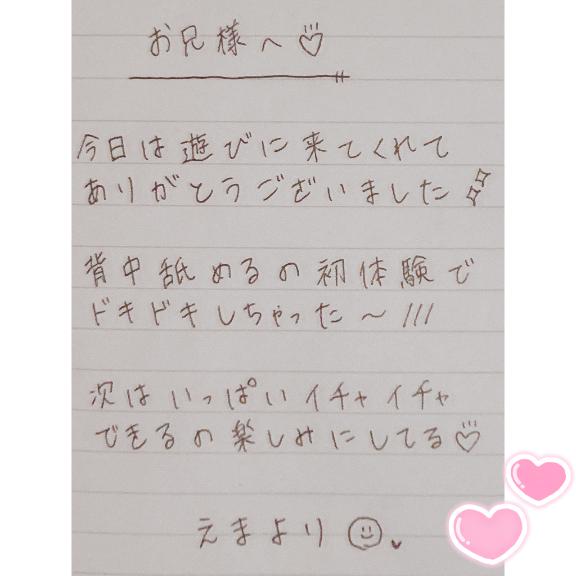 お兄様へ♡
今日は遊びに来てくれて
ありがとうございました
背中舐めるの初体験で
ドキドキしちゃった〜///
次はいっぱいイチャイチャ
できるの楽しみにしてる♡
えまより